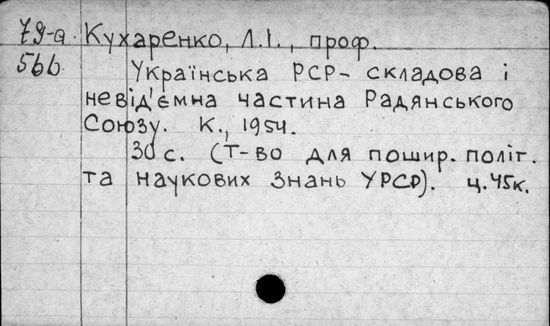 79-а Кухаренко, Л.І., проф.
566 Українська РСР - складова і
невід'ємна частина Радянського
Союзу. К., 1954.
30 с. (Т-во для пошир. політ.
та наукових знань УРСР). ц. 45к.